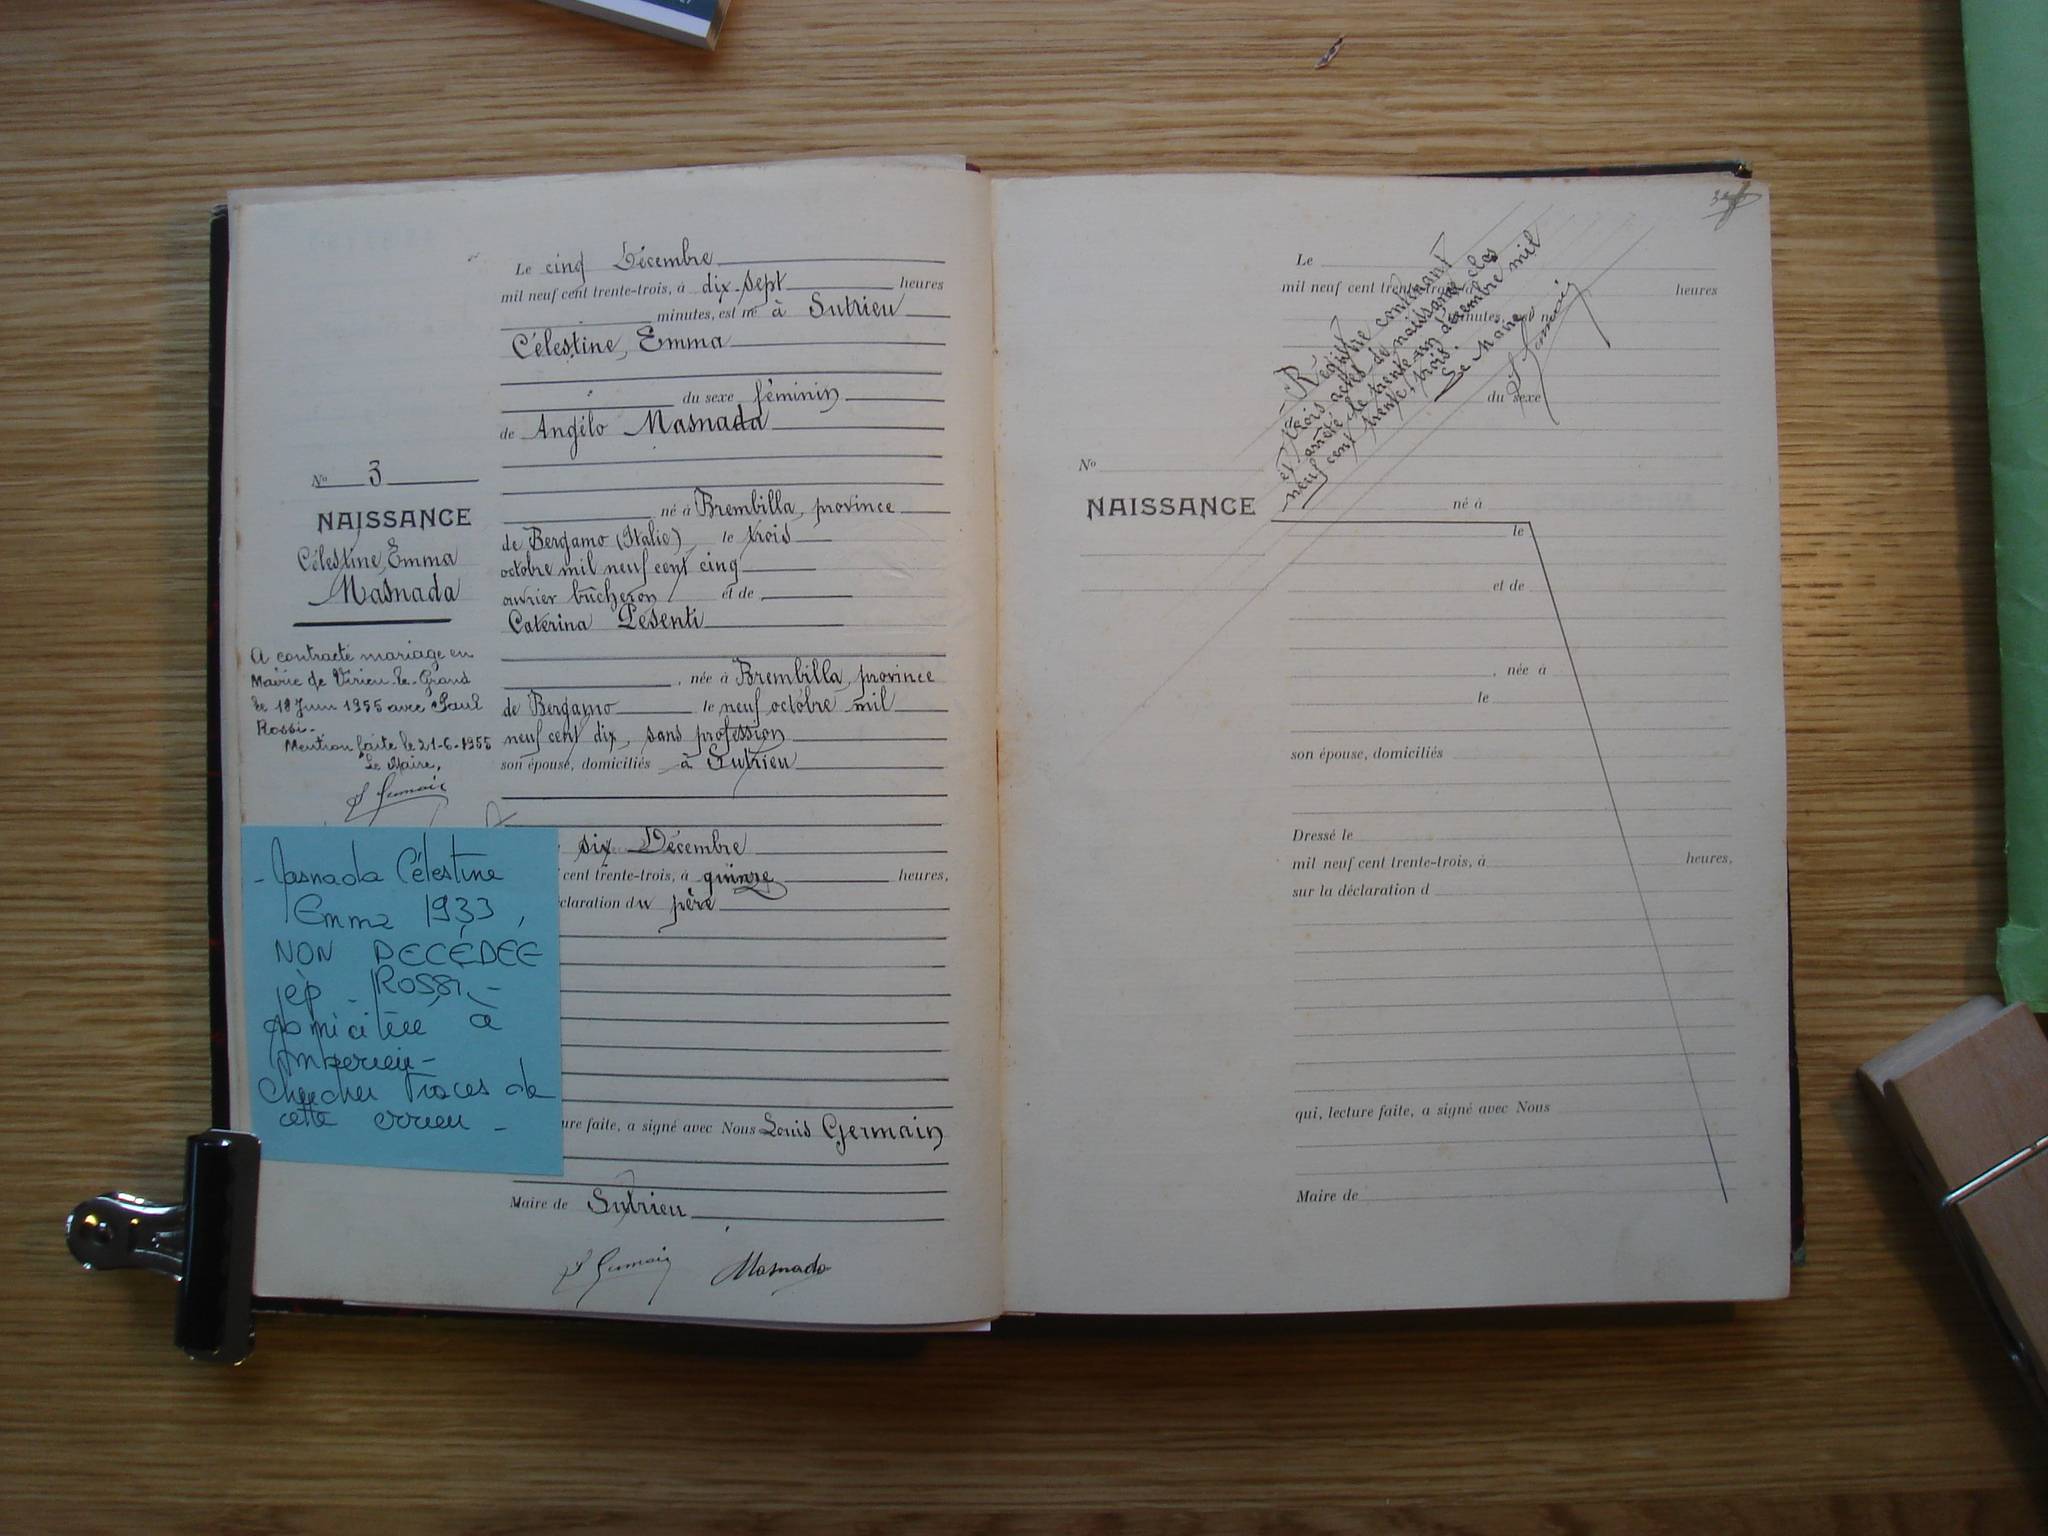 Le cinq Décembre
mil neuf cent trente-trois, à dix-sept heures
minutes, est né à Sutrieu
Célestine, Emma
du sexe féminin
de Angélo Masnada
né à Brembilla, province
de Bergamo (Italie), le trois
octobre mil neuf cent cinq
ouvrier bûcheron et de
Caterina Pesenti
, née à Brembilla, province
de Bergamo le neuf octobre mil
neuf cent dix, sans profession
son épouse, domiciliés à Sutrieu
six Décembre
cent trente-trois, à quinze heures,
claration du père
ure faite, a signé avec Nous Louis Germain
Maire de Sutrieu
Masnada
No 3
NAISSANCE
Célestine, Emma
Masnada
A contracté mariage en
Mairie de Virieu-le-Grand
le 18 Juin 1955 avec Paul
Rossi.
Mention faite le 21-6-1955
Le Maire,
Masnada Célestine
Emma 1933,
NON DECÉDÉE
ép. ROSSI -
domiciliée à
Ambérieu -
Chercher Traces de
cette erreur -
Le
mil neuf cent trente-trois, à heures
minutes, est né
du sexe
Registre contenant
trois actes de naissance clos
et arrêté le trente-un décembre mil
neuf cent trente-trois.
Le Maire
No
NAISSANCE
né à
le
et de
, née à
le
son épouse, domiciliés
Dressé le
mil neuf cent trente-trois, à heures,
sur la déclaration d
qui, lecture faite, a signé avec Nous
Maire de